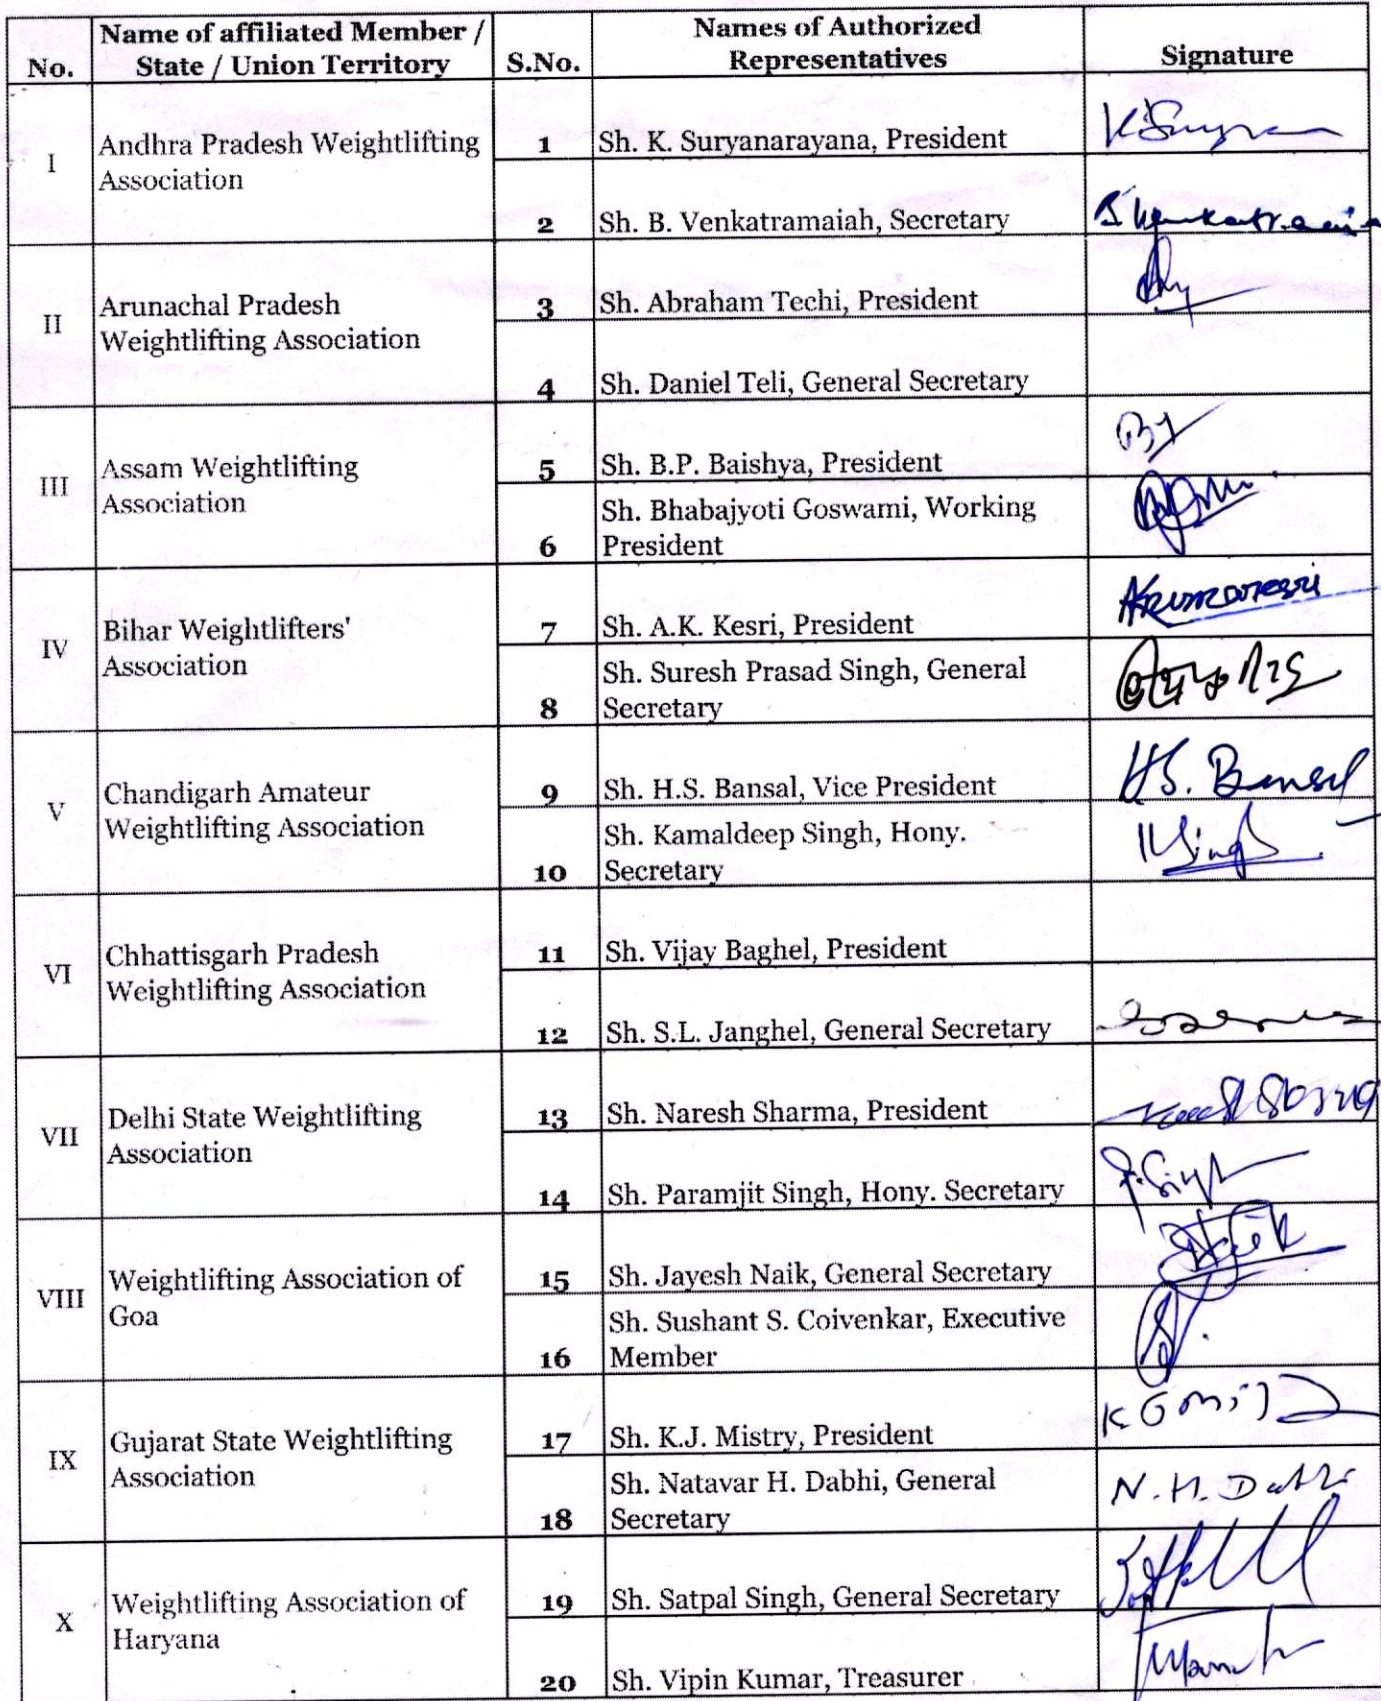 No.
Name of affiliated Member /
State / Union Territory
S.No.
Names of Authorized
Representatives
Signature
I
Andhra Pradesh Weightlifting
Association
1
Sh. K. Suryanarayana, President
2
Sh. B. Venkatramaiah, Secretary
II
Arunachal Pradesh
Weightlifting Association
3
Sh. Abraham Techi, President
4
Sh. Daniel Teli, General Secretary
III
Assam Weightlifting
Association
5
Sh. B.P. Baishya, President
6
Sh. Bhabajyoti Goswami, Working
President
IV
Bihar Weightlifters'
Association
7
Sh. A.K. Kesri, President
8
Sh. Suresh Prasad Singh, General
Secretary
V
Chandigarh Amateur
Weightlifting Association
9
Sh. H.S. Bansal, Vice President
H.S. Bansal
10
Sh. Kamaldeep Singh, Hony.
Secretary
KSingh
VI
Chhattisgarh Pradesh
Weightlifting Association
11
Sh. Vijay Baghel, President
12
Sh. S.L. Janghel, General Secretary
VII
Delhi State Weightlifting
Association
13
Sh. Naresh Sharma, President
14
Sh. Paramjit Singh, Hony. Secretary
P.Singh
VIII
Weightlifting Association of
Goa
15
Sh. Jayesh Naik, General Secretary
16
Sh. Sushant S. Coivenkar, Executive
Member
IX
Gujarat State Weightlifting
Association
17
Sh. K.J. Mistry, President
18
Sh. Natavar H. Dabhi, General
Secretary
N.H. Dabhi
X
Weightlifting Association of
Haryana
19
Sh. Satpal Singh, General Secretary
20
Sh. Vipin Kumar, Treasurer